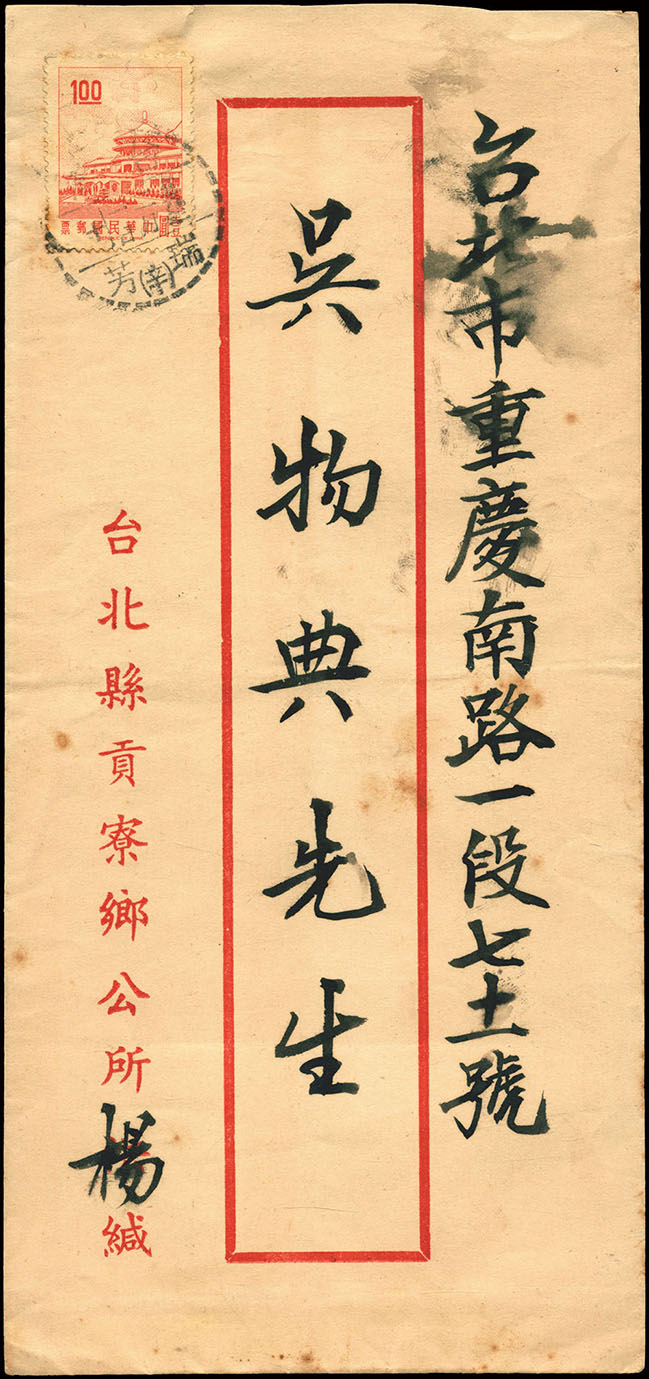 台北市重慶南路一段七十一號
吳物典先生
1.00
中華民國郵票
壹圓
瑞芳(辛)
台北縣貢寮鄉公所楊緘